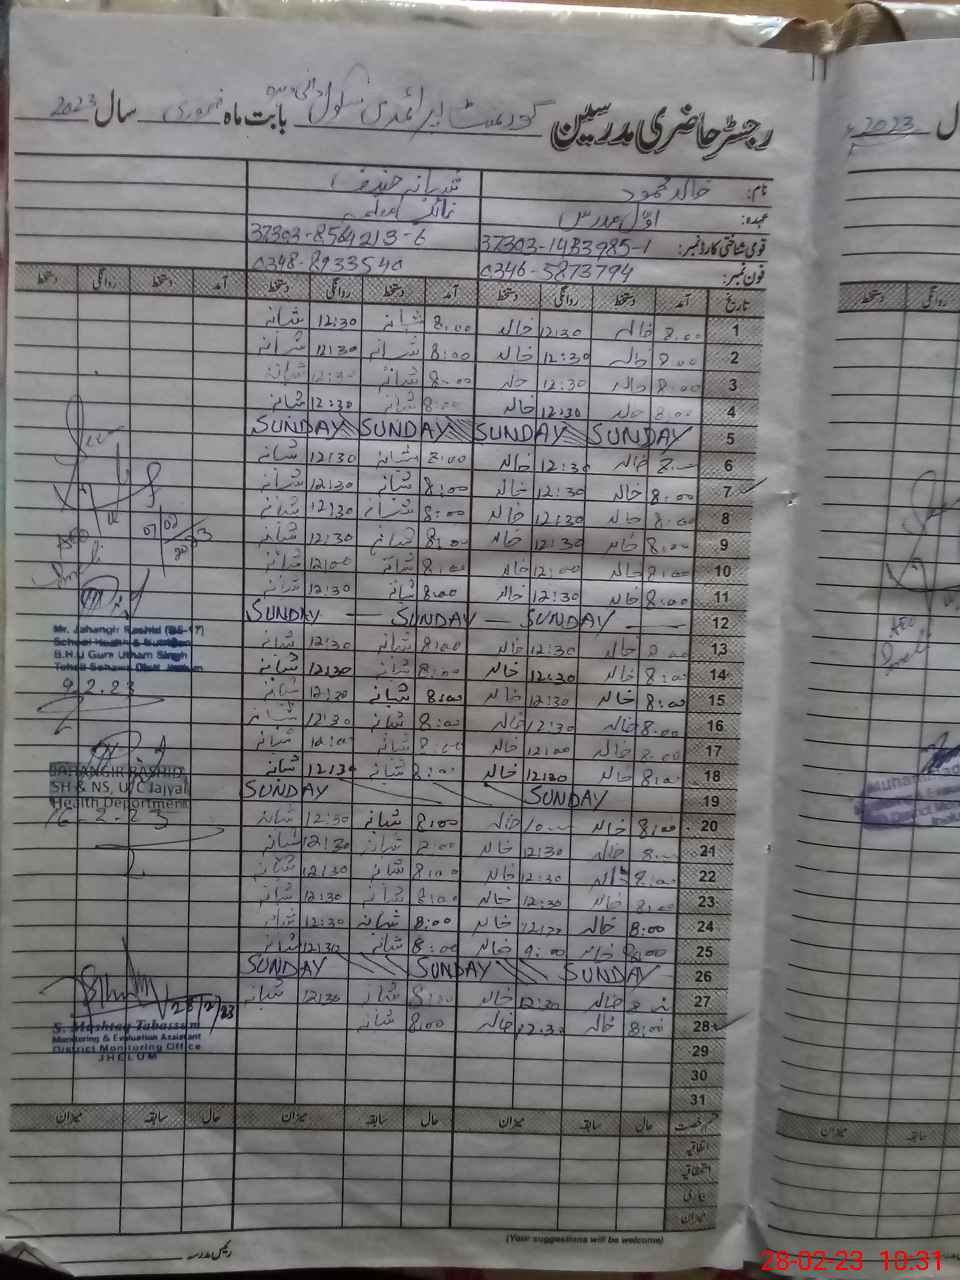 رجسٹر حاضری مدرسین گورنمنٹ پرائمری سکول بابت ماہ فروری سال 2023
نام: خالد محمود شبانہ
عہدہ: اوّل مدرس
قومی شناختی کارڈ نمبر: 37303-1433985-1 37303-8564213-6
فون نمبر: 0346-5873794 0348-8933540
تاریخ آمد دستخط روانگی دستخط آمد دستخط روانگی دستخط آمد دستخط روانگی دستخط
1 8.00 خالد 12:30 خالد 8.00 شبانہ 12:30 شبانہ
2 8.00 خالد 12:30 خالد 8:00 شبانہ 12:30 شبانہ
3 8:00 خالد 12:30 خالد 8:00 شبانہ 12:30 شبانہ
4 8:00 خالد 12:30 خالد 8:00 شبانہ 12:30 شبانہ
5 SUNDAY SUNDAY SUNDAY SUNDAY
6 خالد 12:30 خالد 8:00 شبانہ 12:30 شبانہ
7 8:00 خالد 12:30 خالد 8:00 شبانہ 12:30 شبانہ
8 8:00 خالد 12:30 خالد 8:00 شبانہ 12:30 شبانہ
9 8:00 خالد 12:30 خالد 8:00 شبانہ 12:30 شبانہ
10 8:00 خالد 12:00 خالد 8:00 شبانہ 12:00 شبانہ
11 8:00 خالد 12:30 خالد 8:00 شبانہ 12:30 شبانہ
12 SUNDAY — SUNDAY — SUNDAY
13 8:00 خالد 12:30 خالد 8:00 شبانہ 12:30 شبانہ
14 8:00 خالد 12:30 خالد 8:00 شبانہ 12:30 شبانہ
15 8:00 خالد 12:30 خالد 8:00 شبانہ 12:30 شبانہ
16 8.00 خالد 12:30 خالد 8:00 شبانہ 12:30 شبانہ
17 8:00 خالد 12:00 خالد 8:00 شبانہ 12:00 شبانہ
18 8:00 خالد 12:30 خالد 8:00 شبانہ 12:30 شبانہ
19 SUNDAY SUNDAY
20 8:00 خالد خالد 8:00 شبانہ 12:30 شبانہ
21 خالد 12:30 خالد شبانہ 12:30 شبانہ
22 8:00 خالد 12:30 خالد 8:00 شبانہ 12:30 شبانہ
23 8:00 خالد 12:30 خالد 8:00 شبانہ 12:30 شبانہ
24 8:00 خالد خالد 8:00 شبانہ 12:30 شبانہ
25 8:00 خالد 9:00 خالد 8:00 شبانہ 12:30 شبانہ
26 SUNDAY SUNDAY SUNDAY
27 خالد 12:30 خالد 8:00 شبانہ 12:30 شبانہ
28 8:00 خالد 12:30 خالد 8:00 شبانہ
29
30
31
قسم رخصت حال سابقہ میزان حال سابقہ میزان حال سابقہ میزان
اتفاقیہ
استحقاقیہ
بیماری
میزان
(Your suggestions will be welcome)
رئیس مدرسہ
07/02/2023
Mr. Jahangir Rashid (BS-17)
School Health & Nutrition
B.H.U Gura Uttam Singh
Tehsil Sohawa Distt Jhelum
9.2.23
JAHANGIR RASHID
SH & NS, U/C Jajyal
Health Department
16-2-23
28/2/23
S. Mushtaq Tabassum
Monitoring & Evaluation Assistant
District Monitoring Office
JHELUM
ل 2023
دستخط روانگی
AEO
Muhammad
میزان سابقہ
28-02-23 10:31